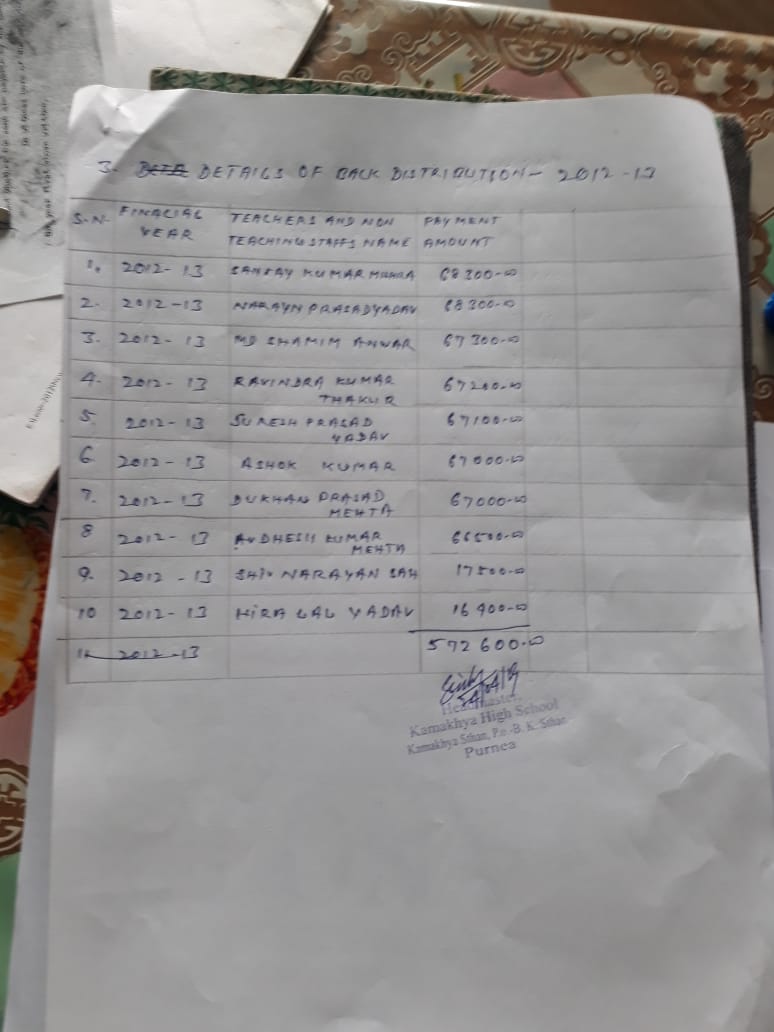 3. DETAILS OF BACK DISTRIBUTION- 2012-13
S.N. FINACIAL YEAR TEACHERS AND NON TEACHING STAFFS NAME PAYMENT AMOUNT
1. 2012-13 SANJAY KUMAR MISHRA 68300-00
2. 2012-13 NARAYN PRASAD YADAV 68300-00
3. 2012-13 MD SHAMIM ANWAR 67300-00
4. 2012-13 RAVINDRA KUMAR THAKUR 67200-00
5. 2012-13 SURESH PRASAD YADAV 67100-00
6. 2012-13 ASHOK KUMAR 67000-00
7. 2012-13 DUKHAN PRASAD MEHTA 67000-00
8 2012-13 AVDHESH KUMAR MEHTA 66500-00
9. 2012-13 SHIV NARAYAN SAH 17500-00
10 2012-13 HIRA LAL YADAV 16400-00
11 2012-13 572600-00
Headmaster,
Kamakhya High School
Kamakhya Sthan, P.o.-B. K. Sthan
Purnea